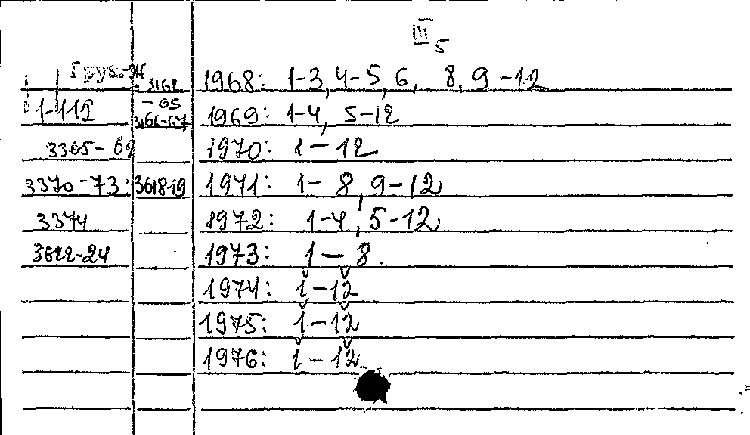 III 5
1968: 1-3, 4-5, 6, 8, 9-12
1969: 1-4, 5-12
3365-
1970: 1-12
3370-73
3618-19
1971: 1-8, 9-12
3374
1972: 1-4, 5-12
3622-24
1973: 1-8.
1974: 1-12
1975: 1-12
1976: 1-12